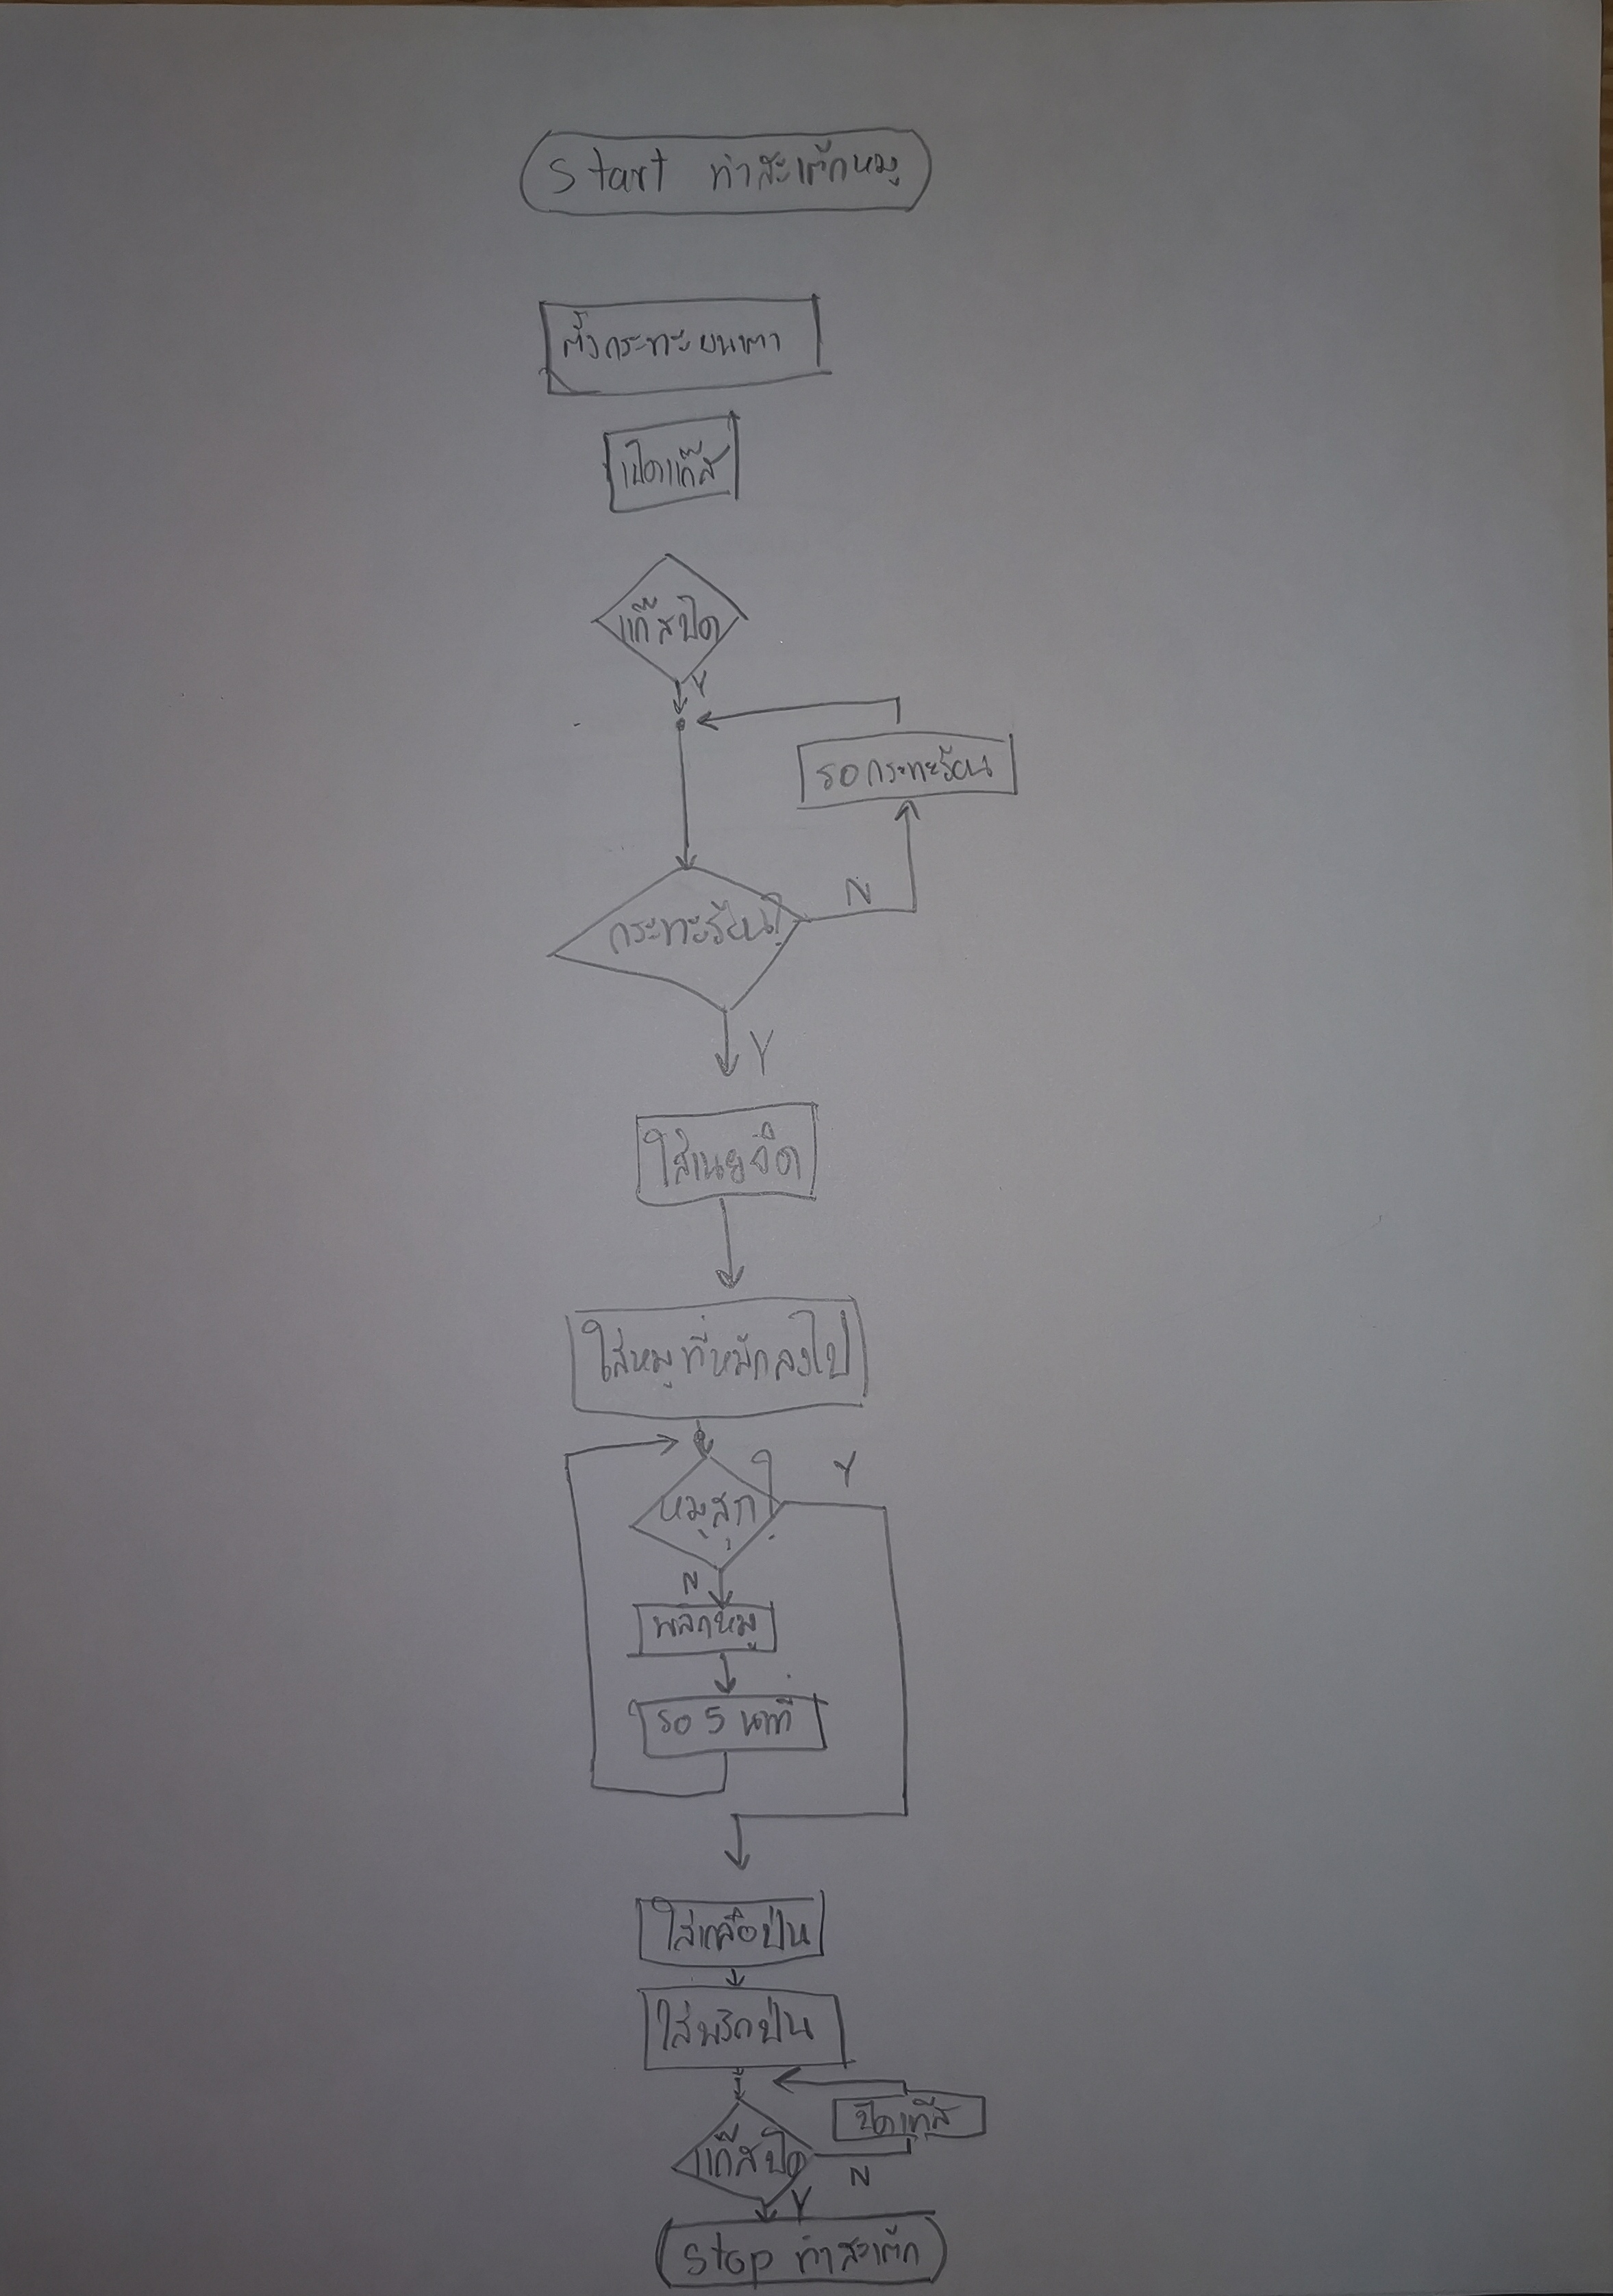 Start ทำสะเต้กหมู
ตั้งกระทะบนเตา
เปิดแก๊ส
แก๊สปิด
Y
รอกระทะร้อน
N
กระทะร้อน?
Y
ใส่เนยจืด
ใส่หมูที่หมักลงไป
Y
หมูสุก?
N
พลิกหมู
รอ 5 นาที
ใส่เกลือป่น
ใส่พริกป่น
ปิดแก๊ส
แก๊สปิด
N
Y
Stop ทำสะเต้ก